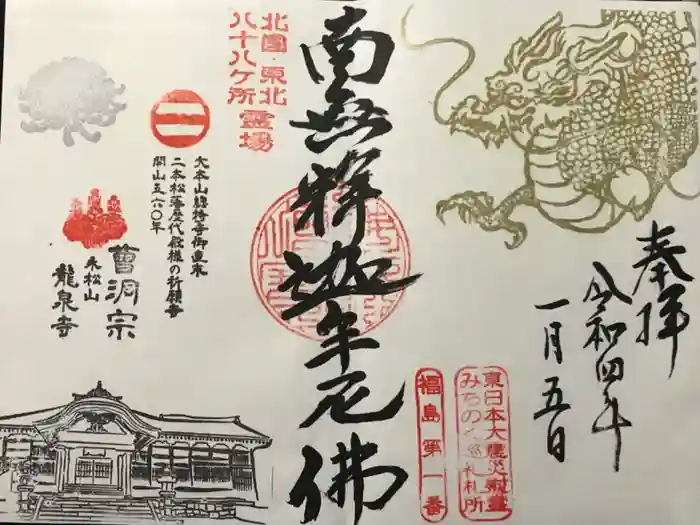 奉拝
令和四年
一月五日
南無釈迦牟尼佛
北国・東北
八十八ケ所
霊場
大本山總持寺御直末
二本松藩歴代殿様の祈願寺
開山五六〇年
曹洞宗
永松山
龍泉寺
東日本大震災慰霊
みちのく巡礼札所
福島第一番